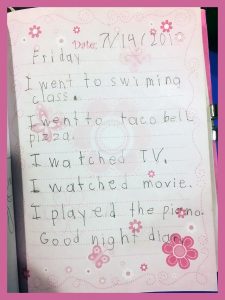 Date: 7/19/201
Friday
I went to swiming
class.
I went to taco bell
pizza.
I watched TV.
I watched movie.
I played the piano.
Good night diary